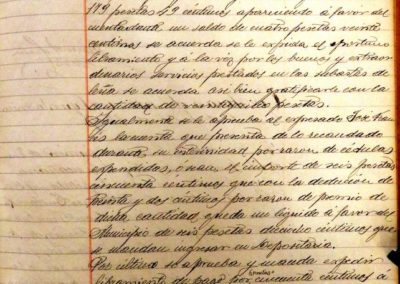 119 pesetas 49 centimos apareciendo á favor del
cuentadante un saldo de cuatro pesetas veinte
centimos se acuerda se le expida el oportuno
libramiento y á la vez por los buenos y extraor
dinarios servicios prestados en las subastas de
leña se acuerda asi bien gratificarle con la
cantidad de pesetas.
Igualmente se le aprueba al expresado Fran
la cuenta que presenta de lo recaudado
durante su interinidad por razon de cédulas
expendidas, o sean el importe de seis pesetas
cincuenta centimos que con la deduccion de
treinta y dos centimos por razon de premio de
dicha cantidad, queda un liquido á favor del
Municipio de seis pesetas dieciocho centimos que
se mandan ingresar en Depositaria.
Por último se aprueba y manda expedir
libramiento de pago por cincuenta centimos á